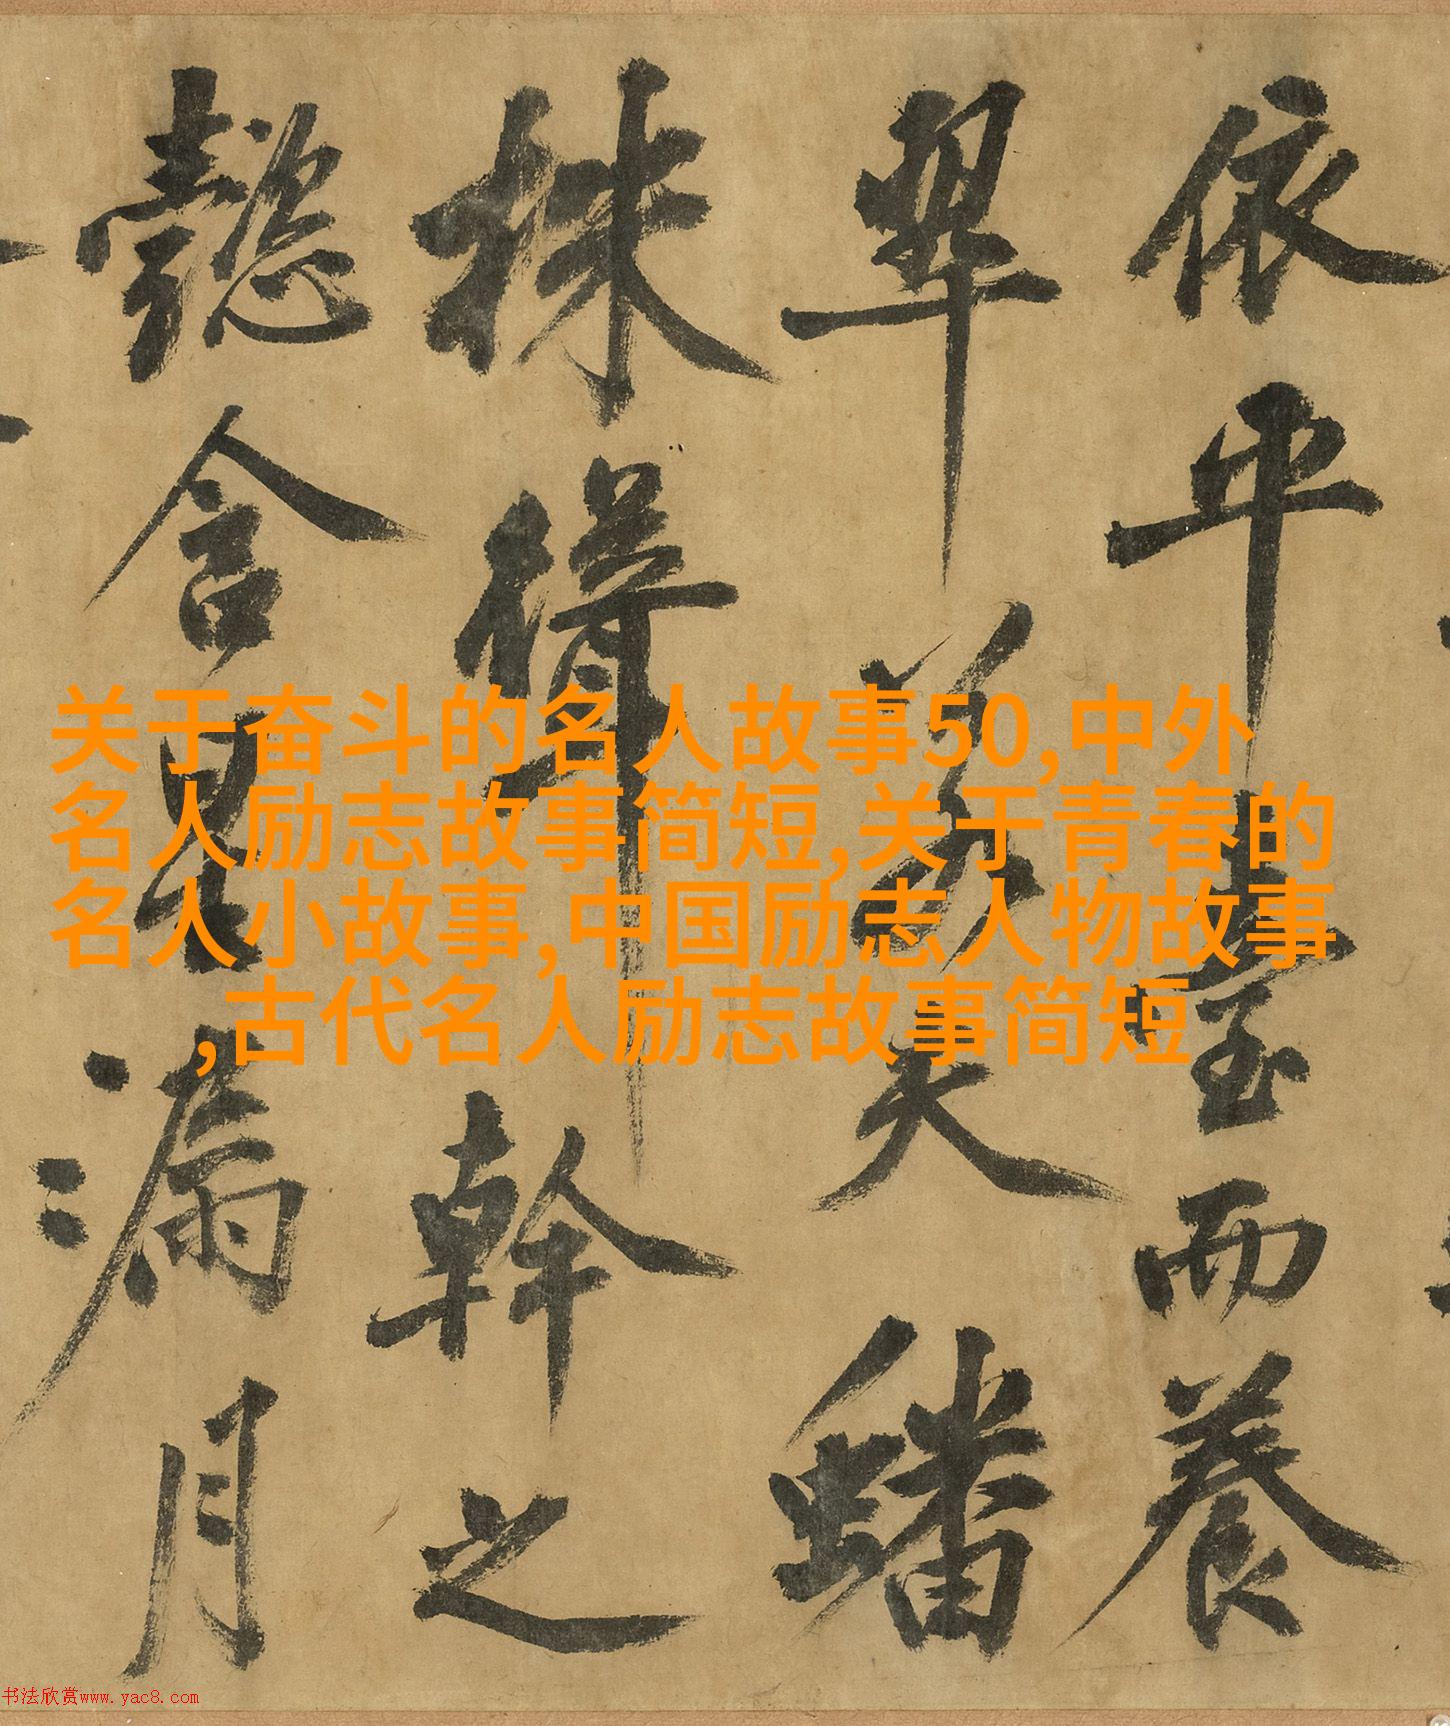 依平臺而養
翠若夫蟠
株幹之
懿含星漏月
关于奋斗的名人故事50,中外
名人励志故事简短,关于青春的
名人小故事,中国励志人物故事
,古代名人励志故事简短
书法欣赏www.yac8.com